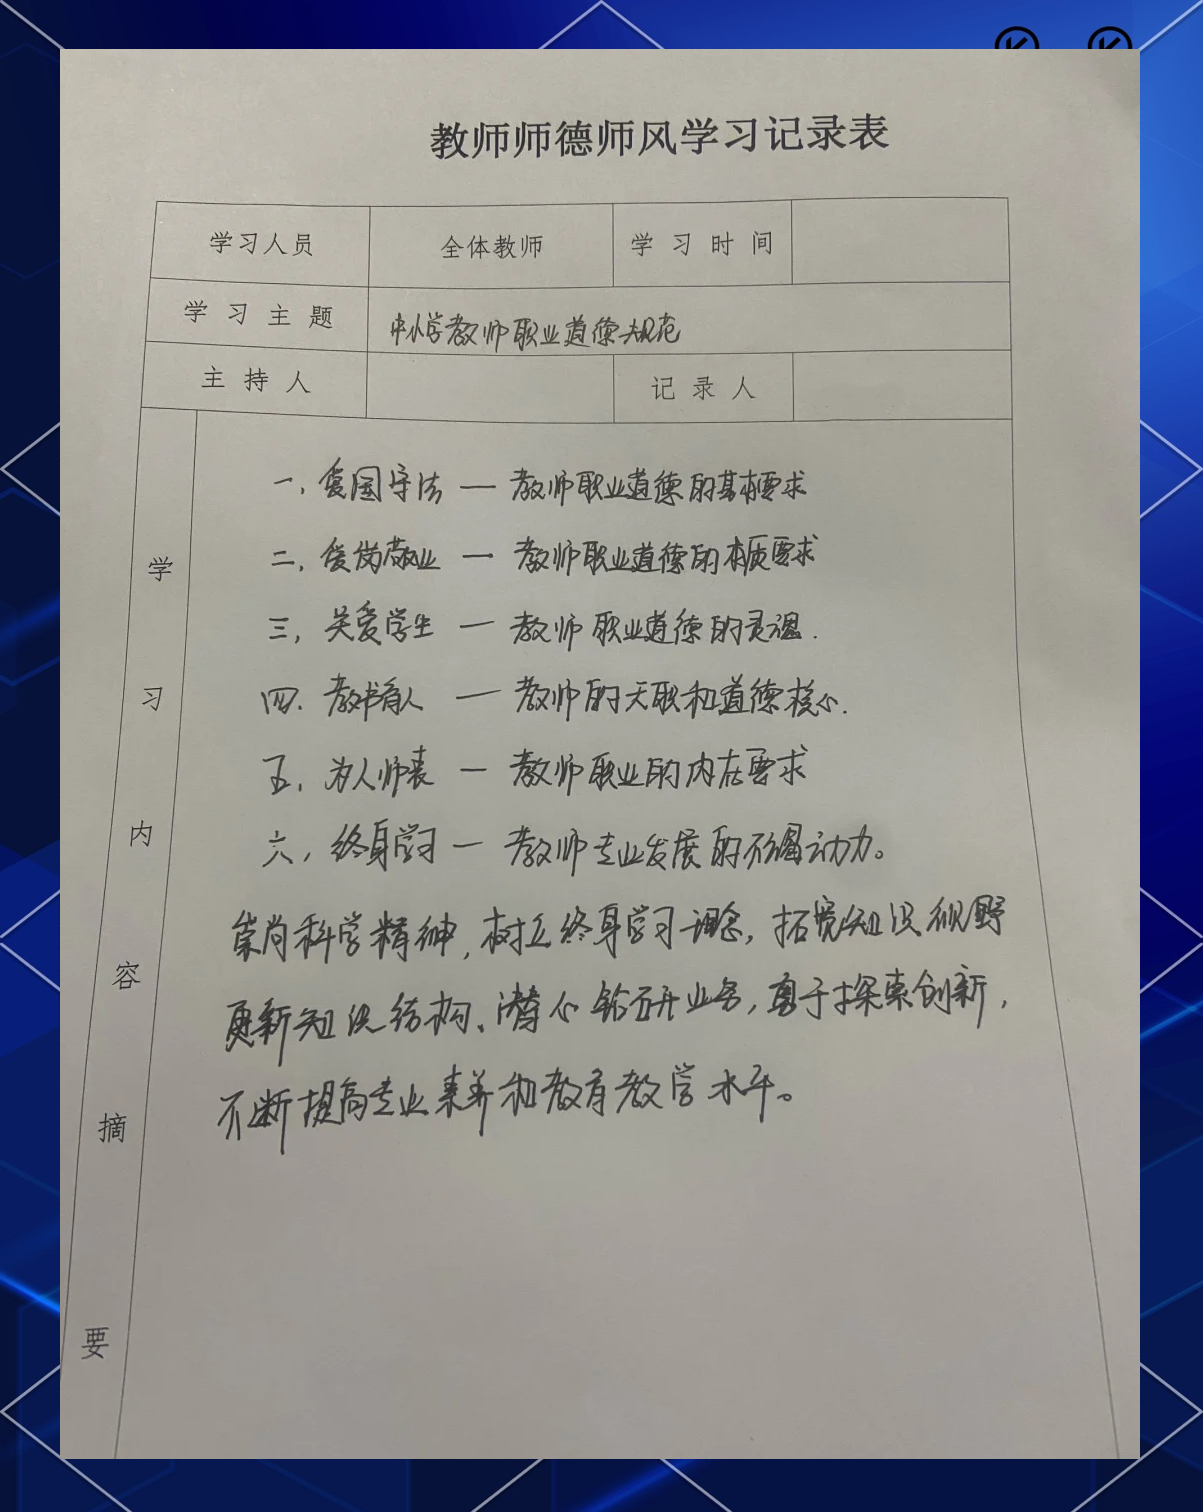 教师师德师风学习记录表
学习人员 全体教师 学习时间
学习主题 中小学教师职业道德规范
主持人 记录人
学习内容摘要
一、爱国守法 — 教师职业道德的基本要求
二、爱岗敬业 — 教师职业道德的本质要求
三、关爱学生 — 教师职业道德的灵魂.
四、教书育人 — 教师的天职和道德核心.
五、为人师表 — 教师职业的内在要求
六、终身学习 — 教师专业发展的不竭动力。
崇尚科学精神,树立终身学习理念,拓宽知识视野
更新知识结构、潜心钻研业务,勇于探索创新,
不断提高专业素养和教育教学水平。